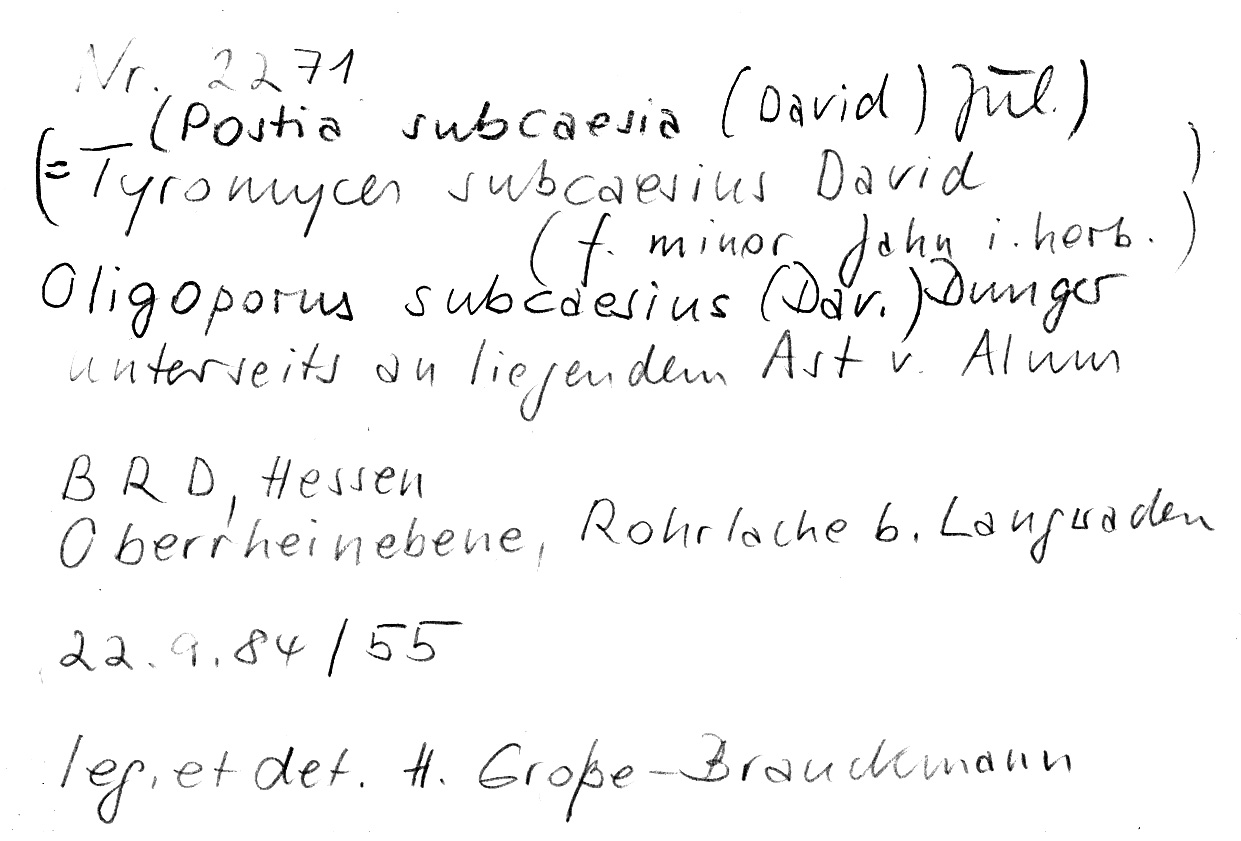 Nr. 2271
(Postia subcaesia (David) Jül.)
(= Tyromyces subcaesius David )
(f. minor Jahn i. herb. )
Oligoporus subcaesius (Dav.) Dunger
unterseits an liegendem Ast v. Alnus
BRD, Hessen
Oberrheinebene, Rohrlache b. Langwaden
22.9.84/55
leg. et det. H. Große-Brauckmann